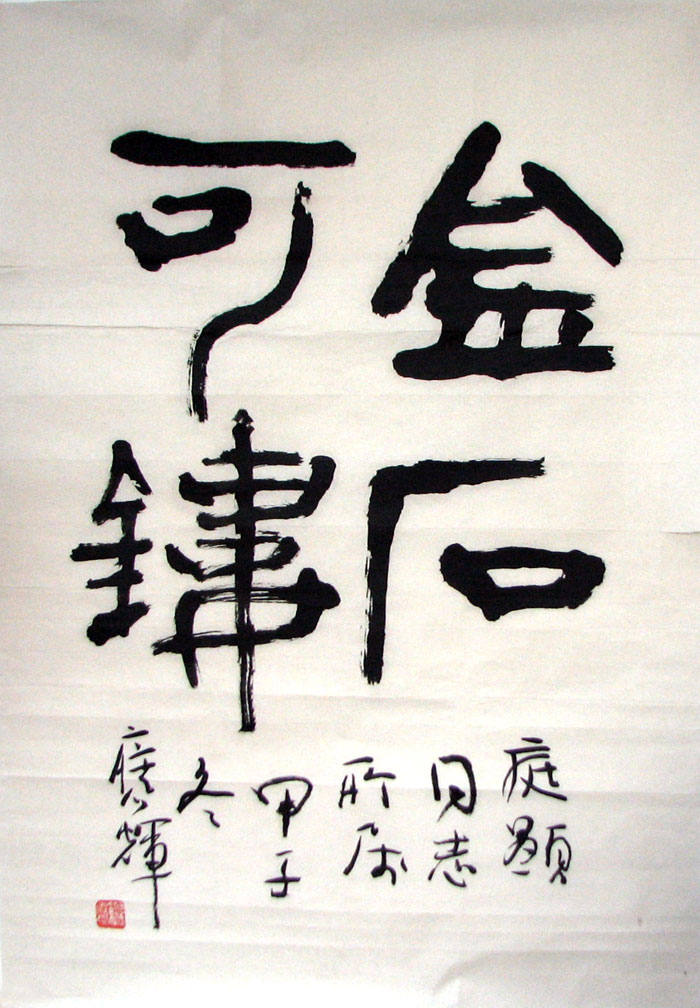 金石
可鏤
庭顯
同志
所属
甲子
冬
輝